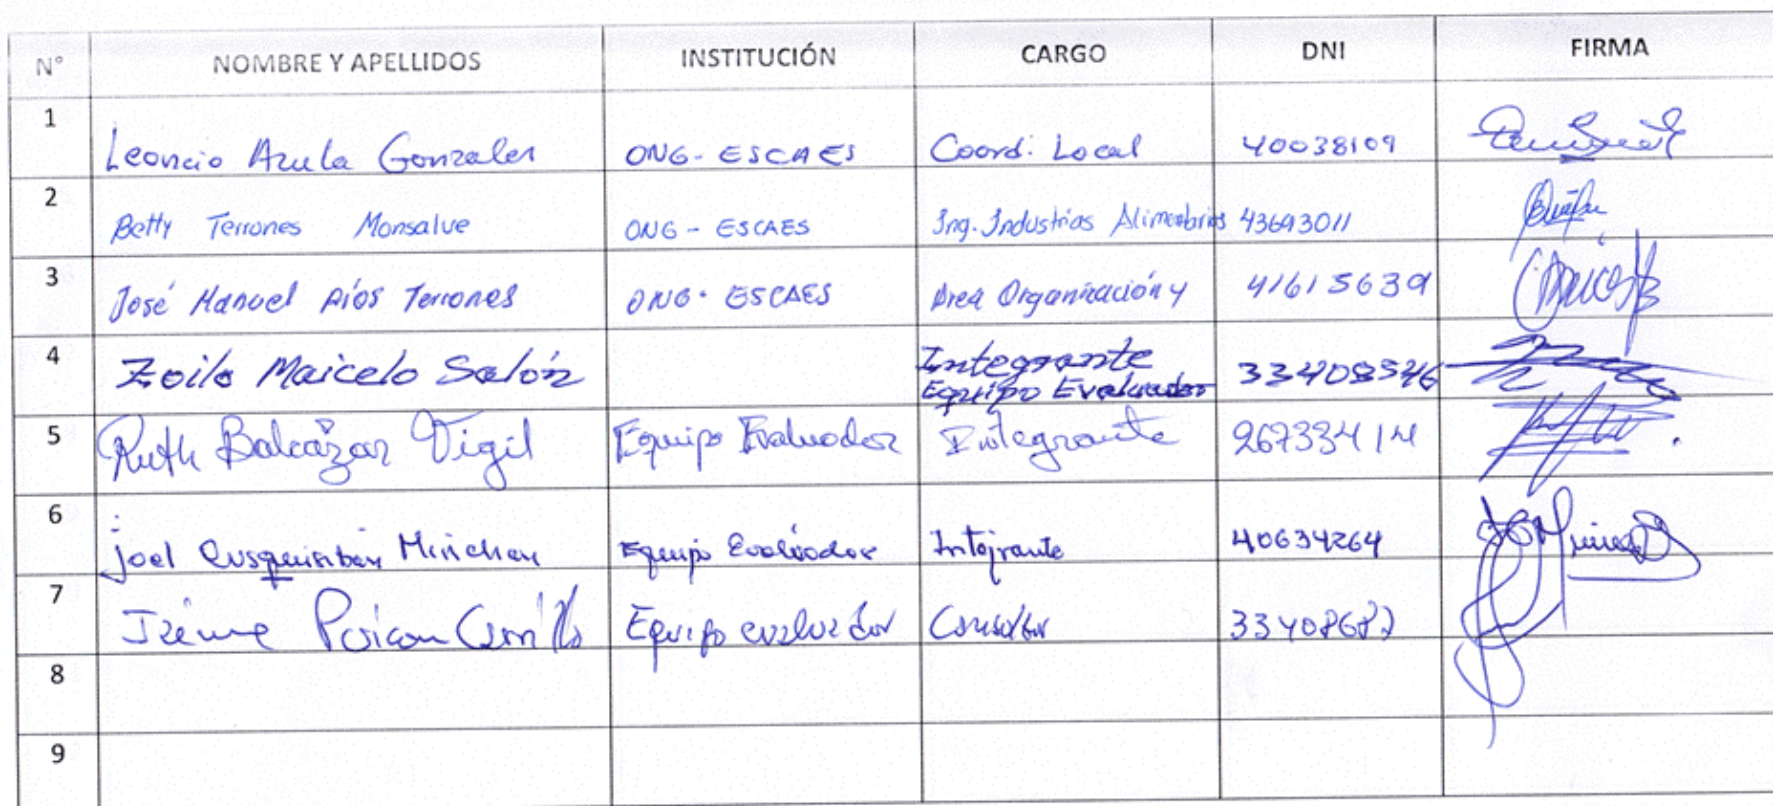 N° NOMBRE Y APELLIDOS INSTITUCIÓN CARGO DNI FIRMA
1 Leoncio Azula Gonzales ONG-ESCAES Coord. Local 40038109
2 Betty Terrones Monsalve ONG-ESCAES Ing. Industrias Alimentarias 43693011
3 José Manuel Ríos Terrones ONG-ESCAES Area Organización y 41615639
4 Zoilo Maicelo Salón Integrante
Equipo Evaluador 33408546
5 Ruth Balcázar Vigil Equipo Evaluador Integrante 26733414
6 Joel Equipo Evaluador 40634264
7 Equipo evaluador Consultor
8
9